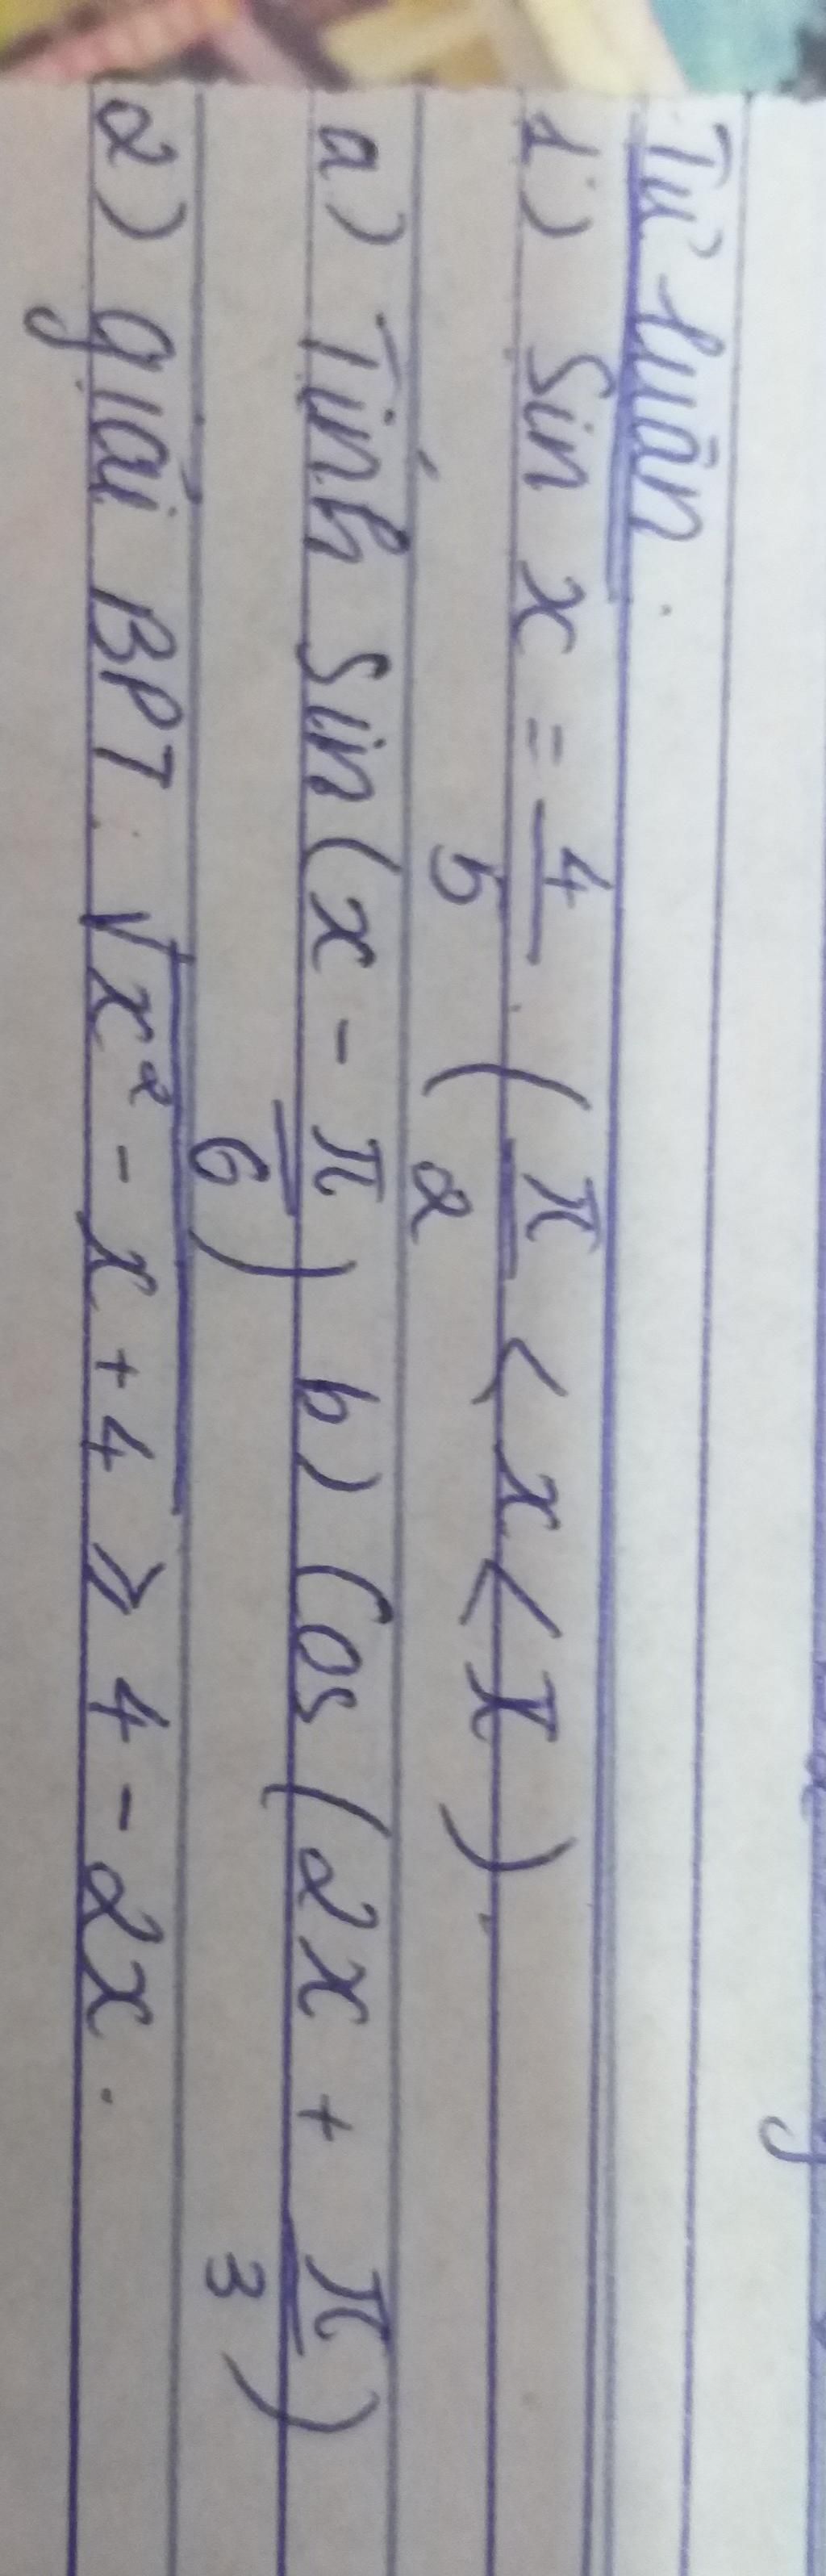 Tự luận.
1) Sin x = 4/5 (π/2 < x < π).
a) Tính Sin (x - π/6) b) Cos (2x + π/3)
2) giải BPT: √x² - x + 4 ⩾ 4 - 2x.